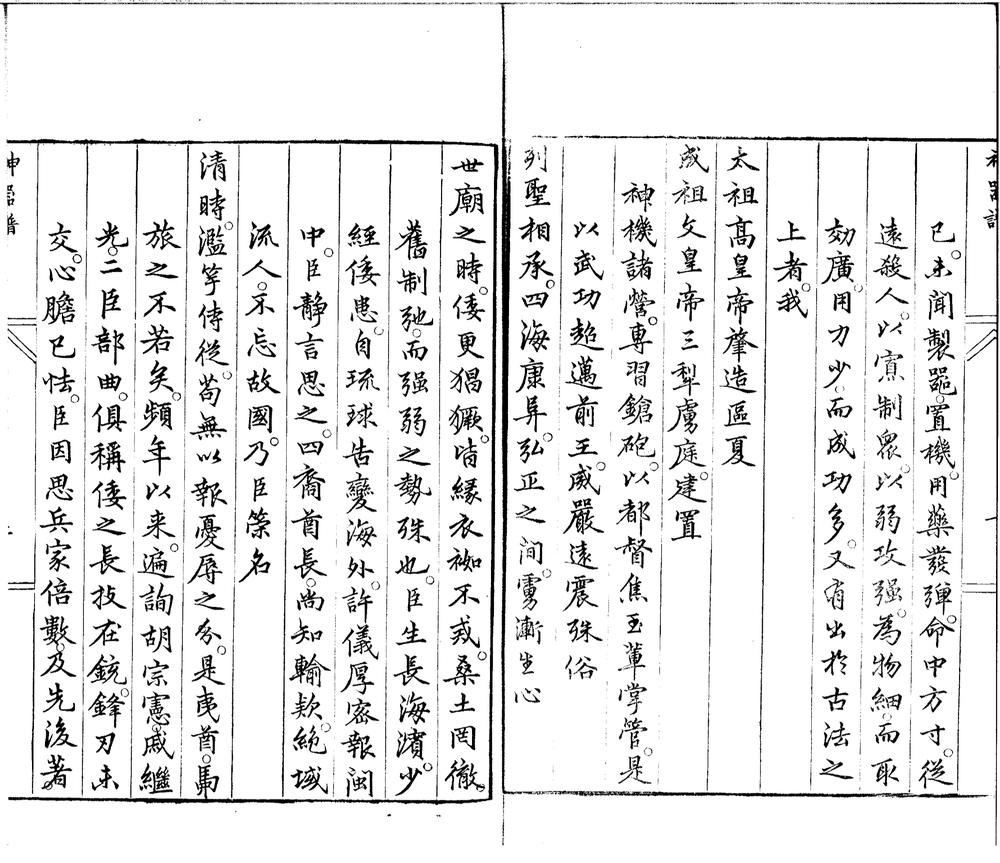 已。未聞製器。置機。用藥發弾。命中方寸。從
遠殺人。以寡制衆。以弱攻强。為物細。而取
効廣。用力少。而成功多。又有出扵古法之
上者。我
太祖髙皇帝肇造區夏
成祖文皇帝三犁虜庭。建置
神機諸營。專習鎗砲。以都督焦玉軰掌管。是
以武功超邁前王。威嚴遠震殊俗
列聖相承。四海康阜。弘正之間。虜漸生心
世廟之時。倭更猖獗。皆縁衣袽不戒。桑土罔徹。
舊制弛。而强弱之勢殊也。臣生長海濱。少
經倭患。自琉球告變海外。許儀厚密報閩
中。臣靜言思之。四裔酋長。尚知輸欵。絶域
流人。不忘故國。乃臣榮名
清時。濫竽侍從。苟無以報憂辱之分。是夷酋。馬
旅之不若矣。頻年以来。遍詢胡宗憲。戚繼
光。二臣部曲。俱稱倭之長技在銃。鋒刃未
交。心膽已怯。臣因思兵家倍數。及先後著。
神器譜